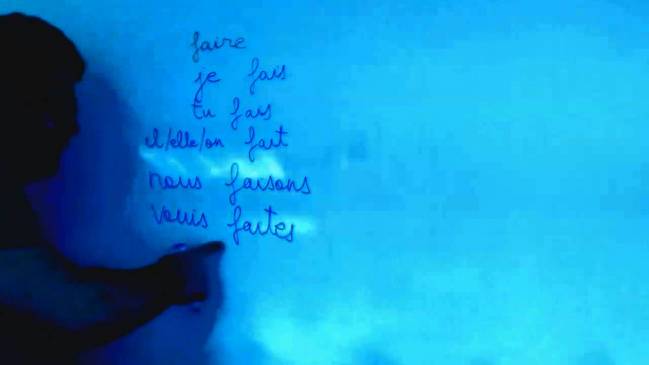 faire
je fais
tu fais
il/elle/on fait
nous faisons
vous faites